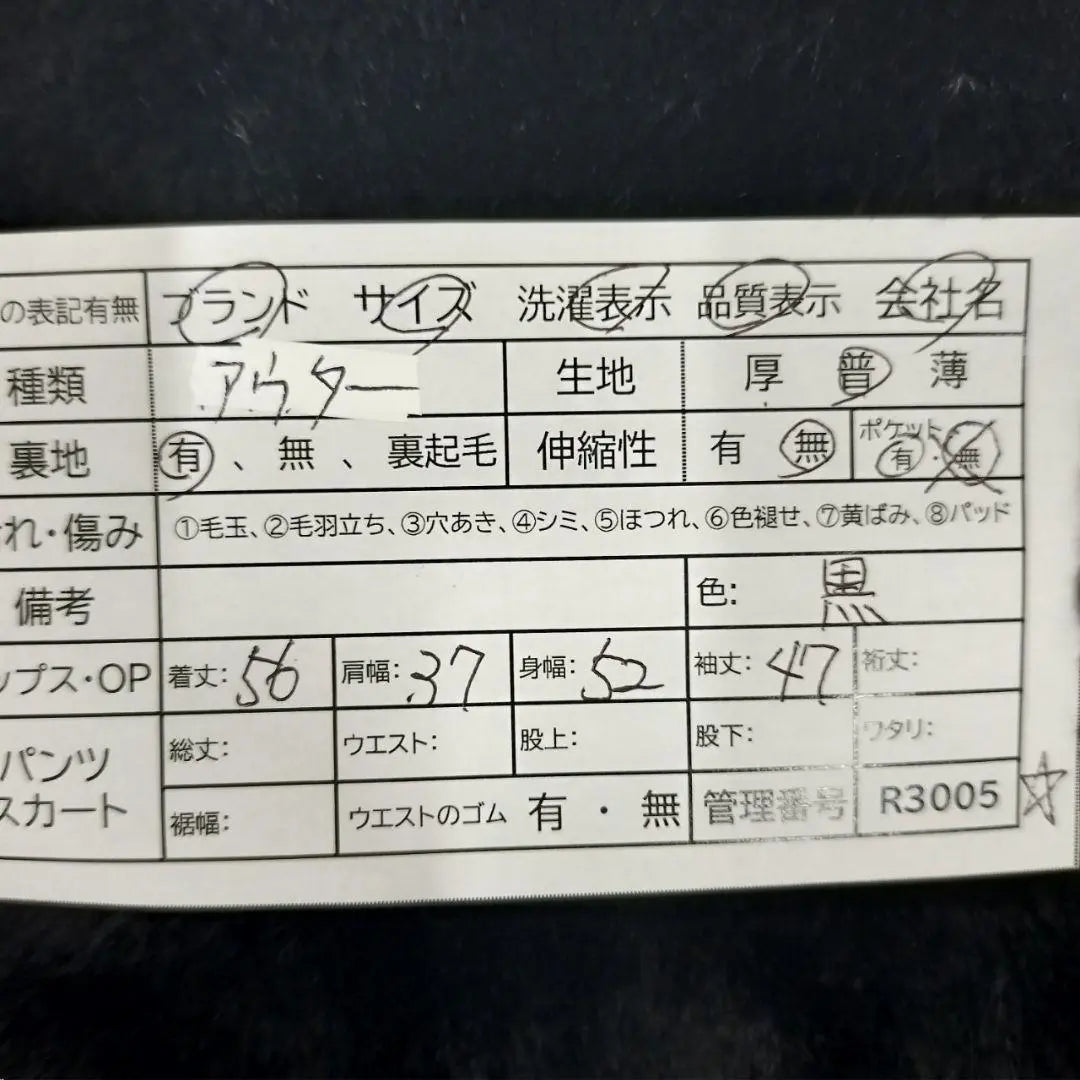 の表記有無 ブランド サイズ 洗濯表示 品質表示 会社名
種類 アウター 生地 厚 普 薄
裏地 有、無、裏起毛 伸縮性 有 無 ポケット 有・無
れ・傷み ①毛玉、②毛羽立ち、③穴あき、④シミ、⑤ほつれ、⑥色褪せ、⑦黄ばみ、⑧パッド
備考 色: 黒
ップス・OP 着丈: 56 肩幅: 37 身幅: 52 袖丈: 47 裄丈:
パンツ 総丈: ウエスト: 股上: 股下: ワタリ:
スカート 裾幅: ウエストのゴム 有・無 管理番号 R3005